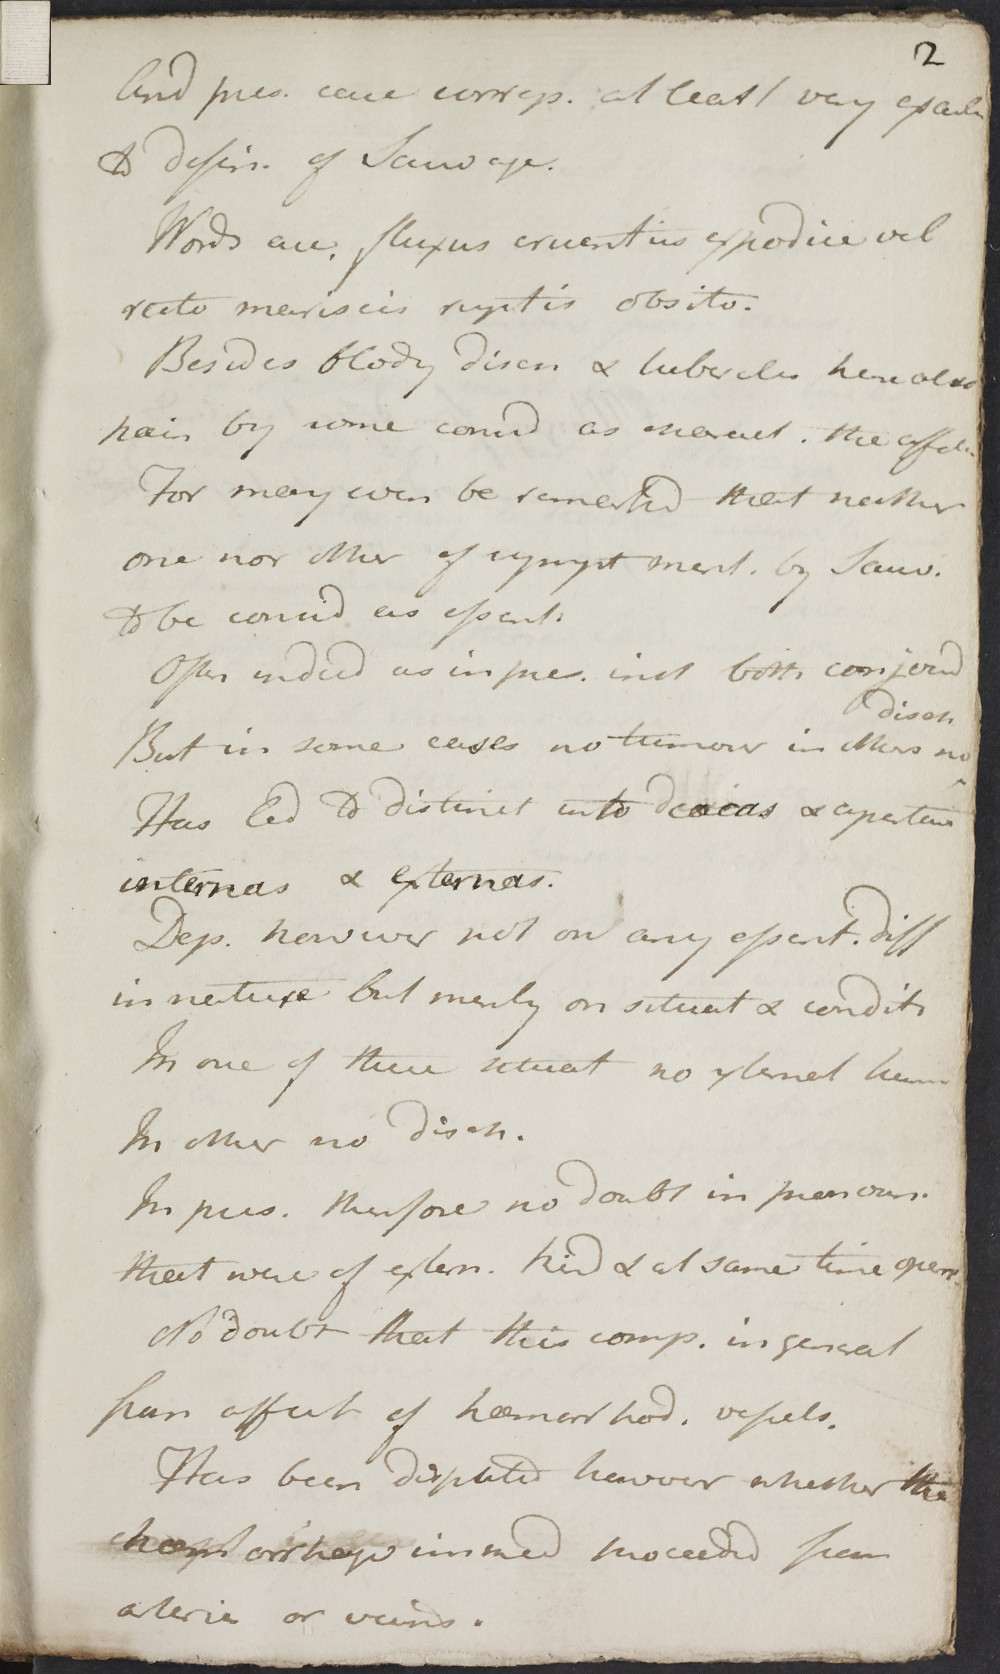 2
And pres. case corresp. at least very exactly
to defin. of Sauvage.
Words are, fluxus cruentus ex podice vel
recto mariscis ruptis obsito.
Besides bloody disch & tubercles here also
pain by some consid as charact. the affectn
For may even be remarked that neither
one nor other of sympt ment. by Sauv.
to be consid as essent.
Often indeed as in pres. inst both conjoind
disch
But in some cases no tumour in others no
Has led to distinct into caecas & apertas
internas & externas.
Dep. however not on any essent. diff
in nature but merely on situat & condit
In one of these situat no external haem
In other no disch.
In pres. therefore no doubt in
that were of extern. kind & at same time open
No doubt that this comp. in general
from affect of haemorrhod. vessels.
Has been disputed however whether the
haemorrhage immed proceeded from
arteries or veins.